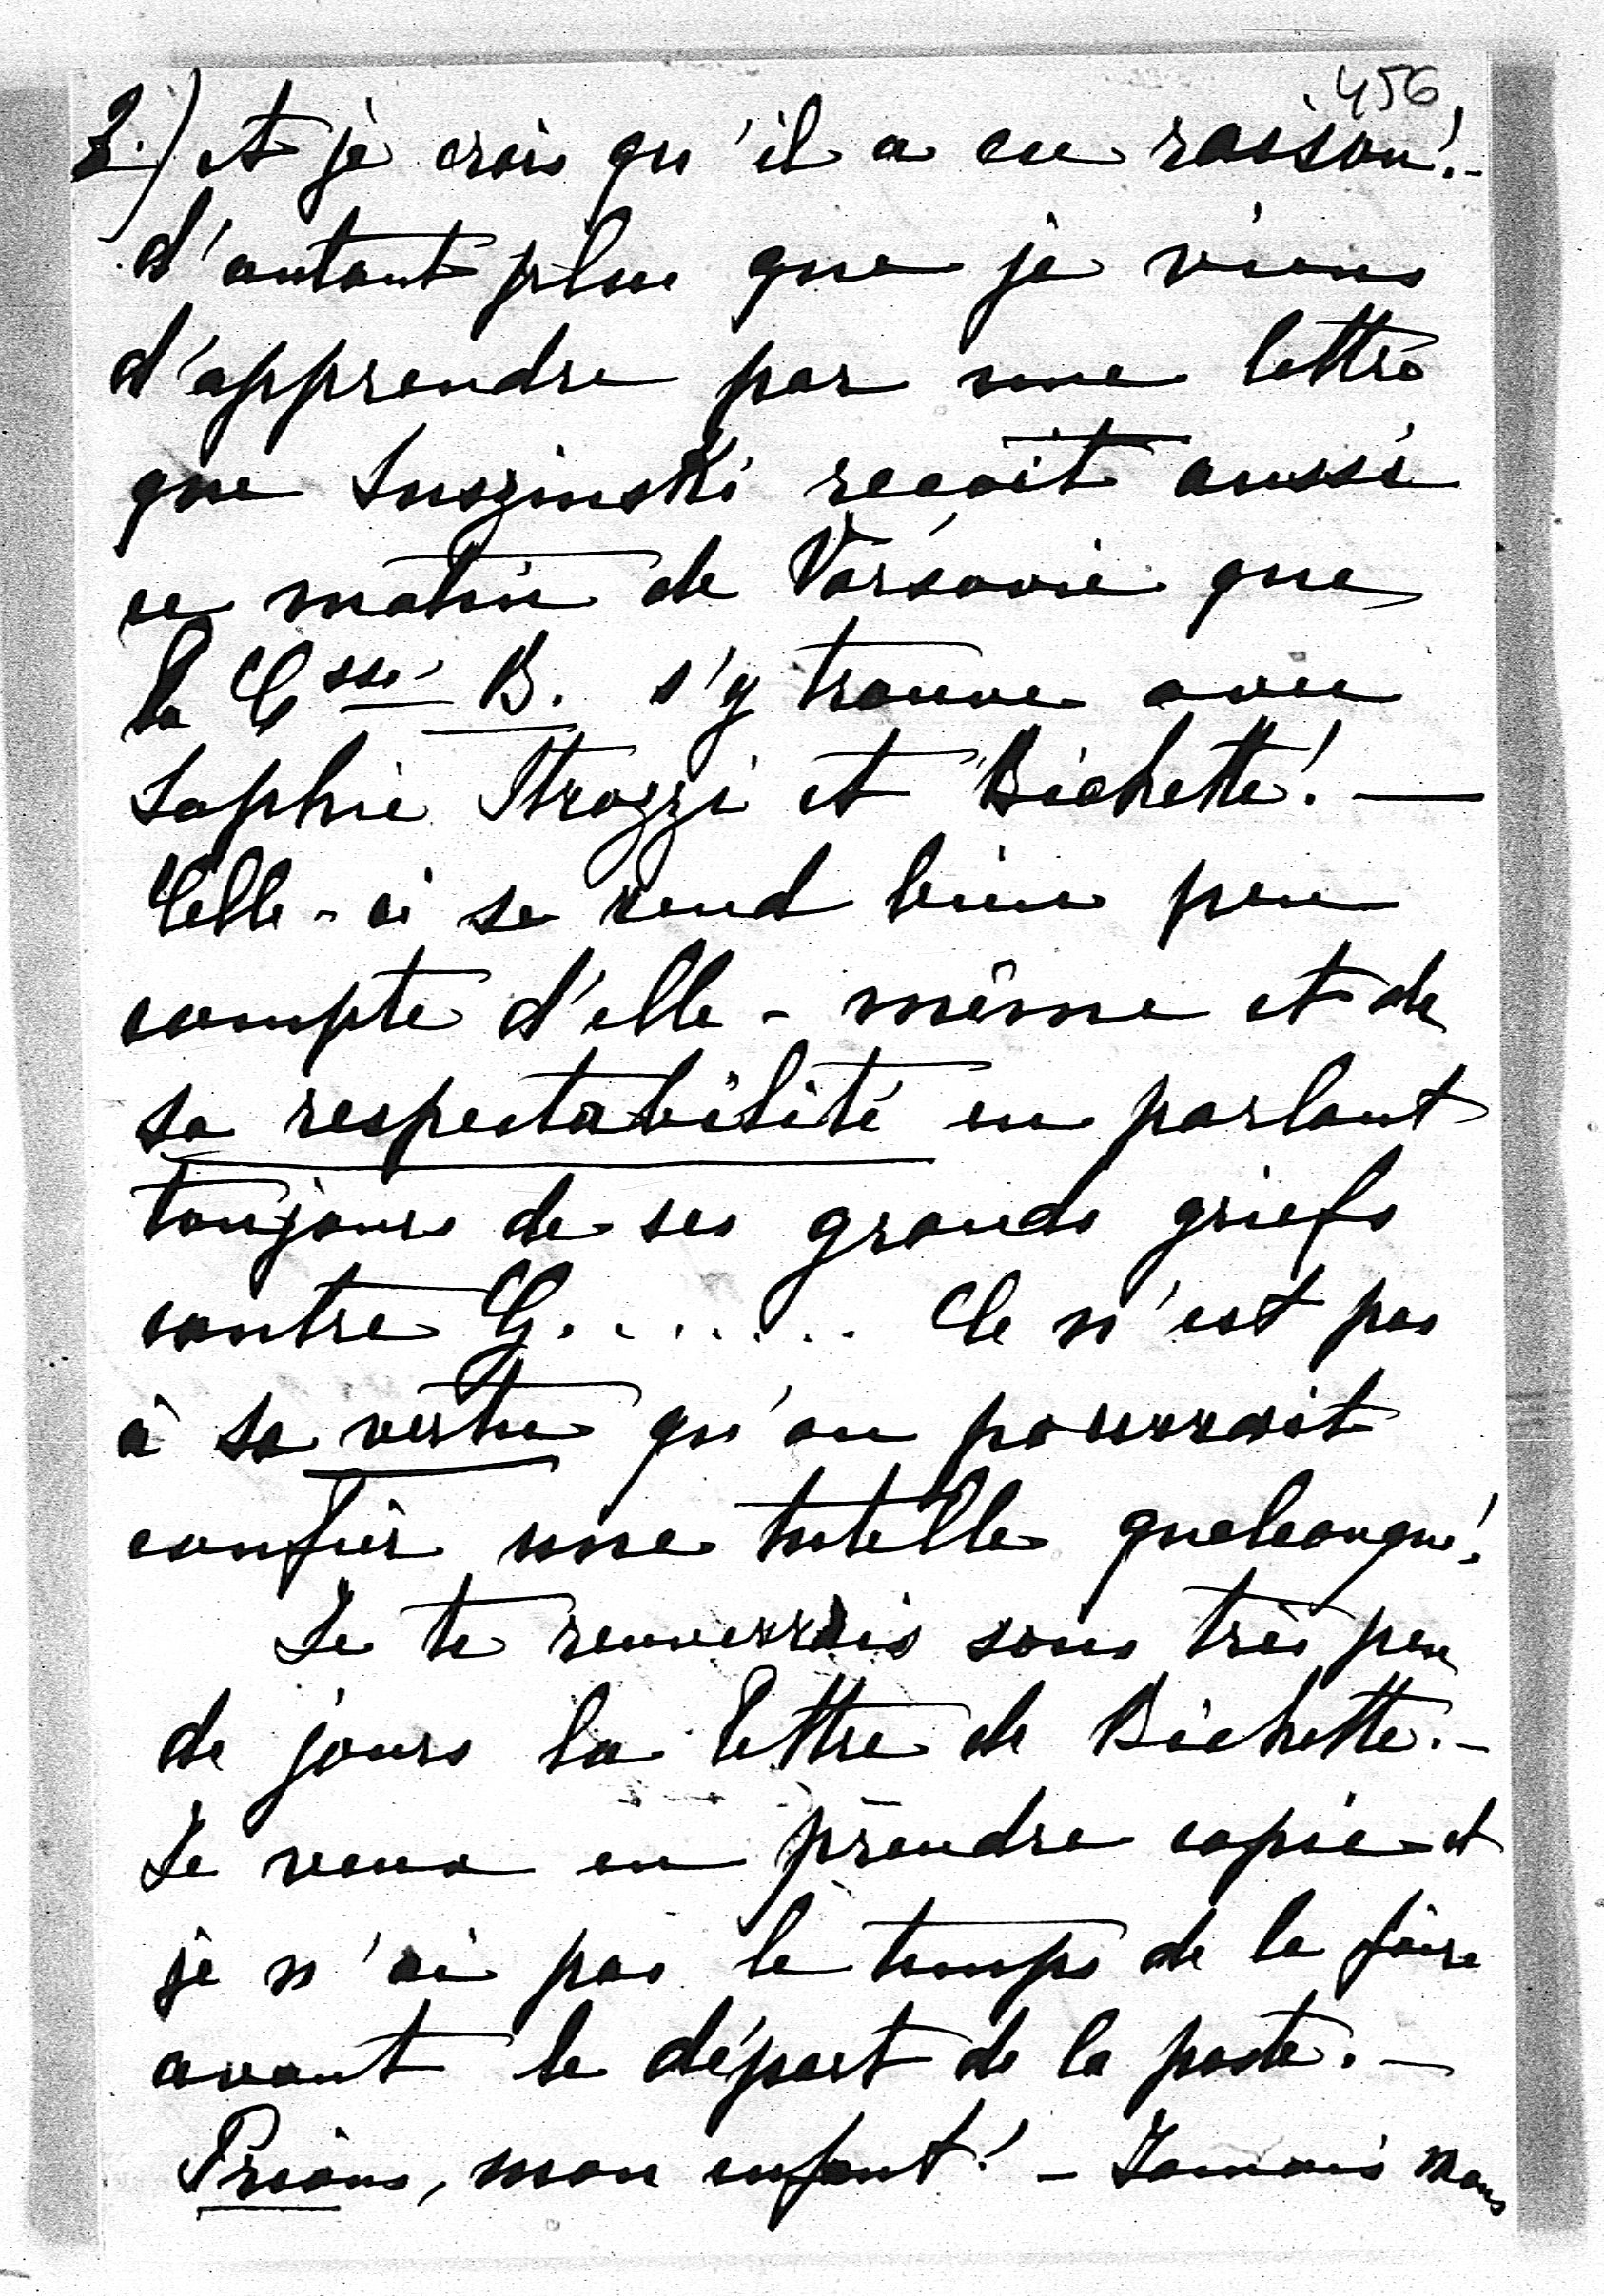 456
2.) et je crois qu'il a eu raison!-
d'autant plus que je viens
d'apprendre par une lettre
que Suszinski reçoit aussi
ce matin de Varsovie que
la Csse B. s'y trouve avec
Sophie Strozzi et Bichette! —
Celle-ci se rend bien peu
compte d'elle-même et de
sa respectabilité en parlant
toujours de ses grands griefs
contre G....... Ce n'est pas
à sa vertu qu'on pourrait
confier une tutelle quelconque!
Je te renverrais sous très peu
de jours la lettre de Bichette.-
Je veux en prendre copie et
je n'ai pas le temps de le faire
avant le départ de la poste.-
Prions, mon enfant! - Jamais nous